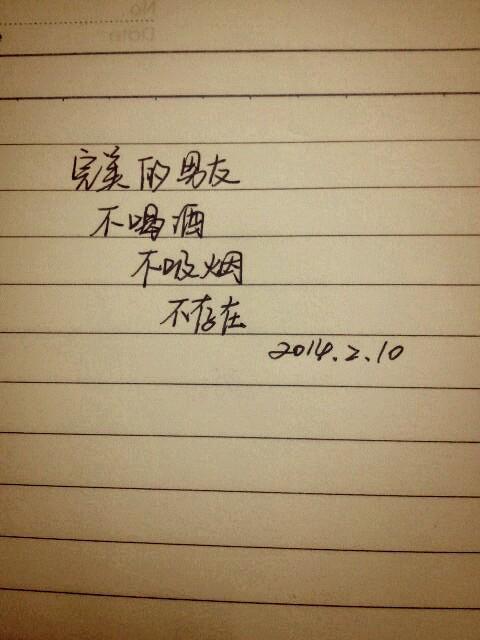 No
Date
完美的男友
不喝酒
不吸烟
不存在
2014.2.10